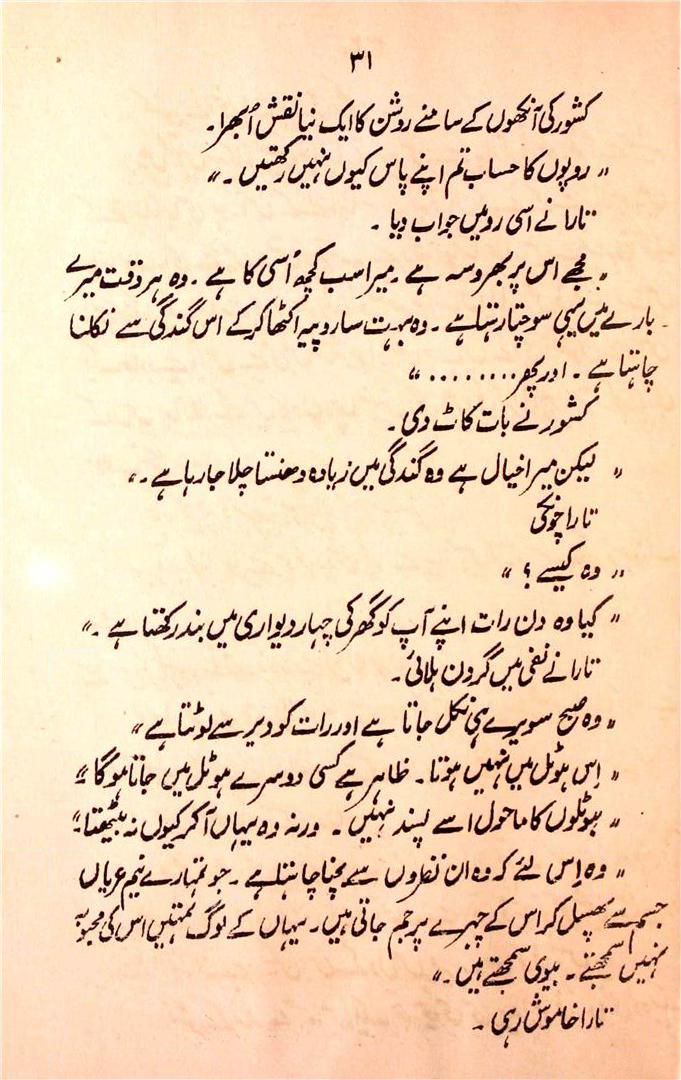 ۳۱
کشور کی آنکھوں کے سامنے روشن کا ایک نیا نقش اُبھرا۔
"روپوں کا حساب تم اپنے پاس کیوں نہیں رکھتیں۔"
تارا نے اسی رو میں جواب دیا۔
"مجھے اس پر بھروسہ ہے۔ میرا سب کچھ اُسی کا ہے۔ وہ ہر وقت میرے
بارے میں یہی سوچتا رہتا ہے۔ وہ بہت سارو پیہ اکٹھا کر کے اس گندگی سے نکلنا
چاہتا ہے۔ اور پھر........"
کشور نے بات کاٹ دی۔
"لیکن میرا خیال ہے وہ گندگی میں زیادہ دھنستا چلا جا رہا ہے۔"
تارا چونکی
"وہ کیسے؟"
"کیا وہ دن رات اپنے آپ کو گھر کی چہار دیواری میں بند رکھتا ہے۔"
تارا نے نفی میں گردن ہلائی۔
"وہ صبح سویرے ہی نکل جاتا ہے اور رات کو دیر سے لوٹتا ہے"
"اِس ہوٹل میں نہیں ہوتا۔ ظاہر ہے کسی دوسرے ہوٹل میں جاتا ہوگا"
"ہوٹلوں کا ماحول اسے پسند نہیں۔ ورنہ وہ یہاں آ کر کیوں نہ بیٹھتا"
"وہ اِس لئے کہ وہ ان نظروں سے بچنا چاہتا ہے۔ جو تمہارے نیم عریاں
جسم سے پھسل کر اس کے چہرے پر جم جاتی ہیں۔ یہاں کے لوگ تمہیں اس کی محبوبہ
نہیں سمجھتے۔ بیوی سمجھتے ہیں۔"
تارا خاموش رہی۔